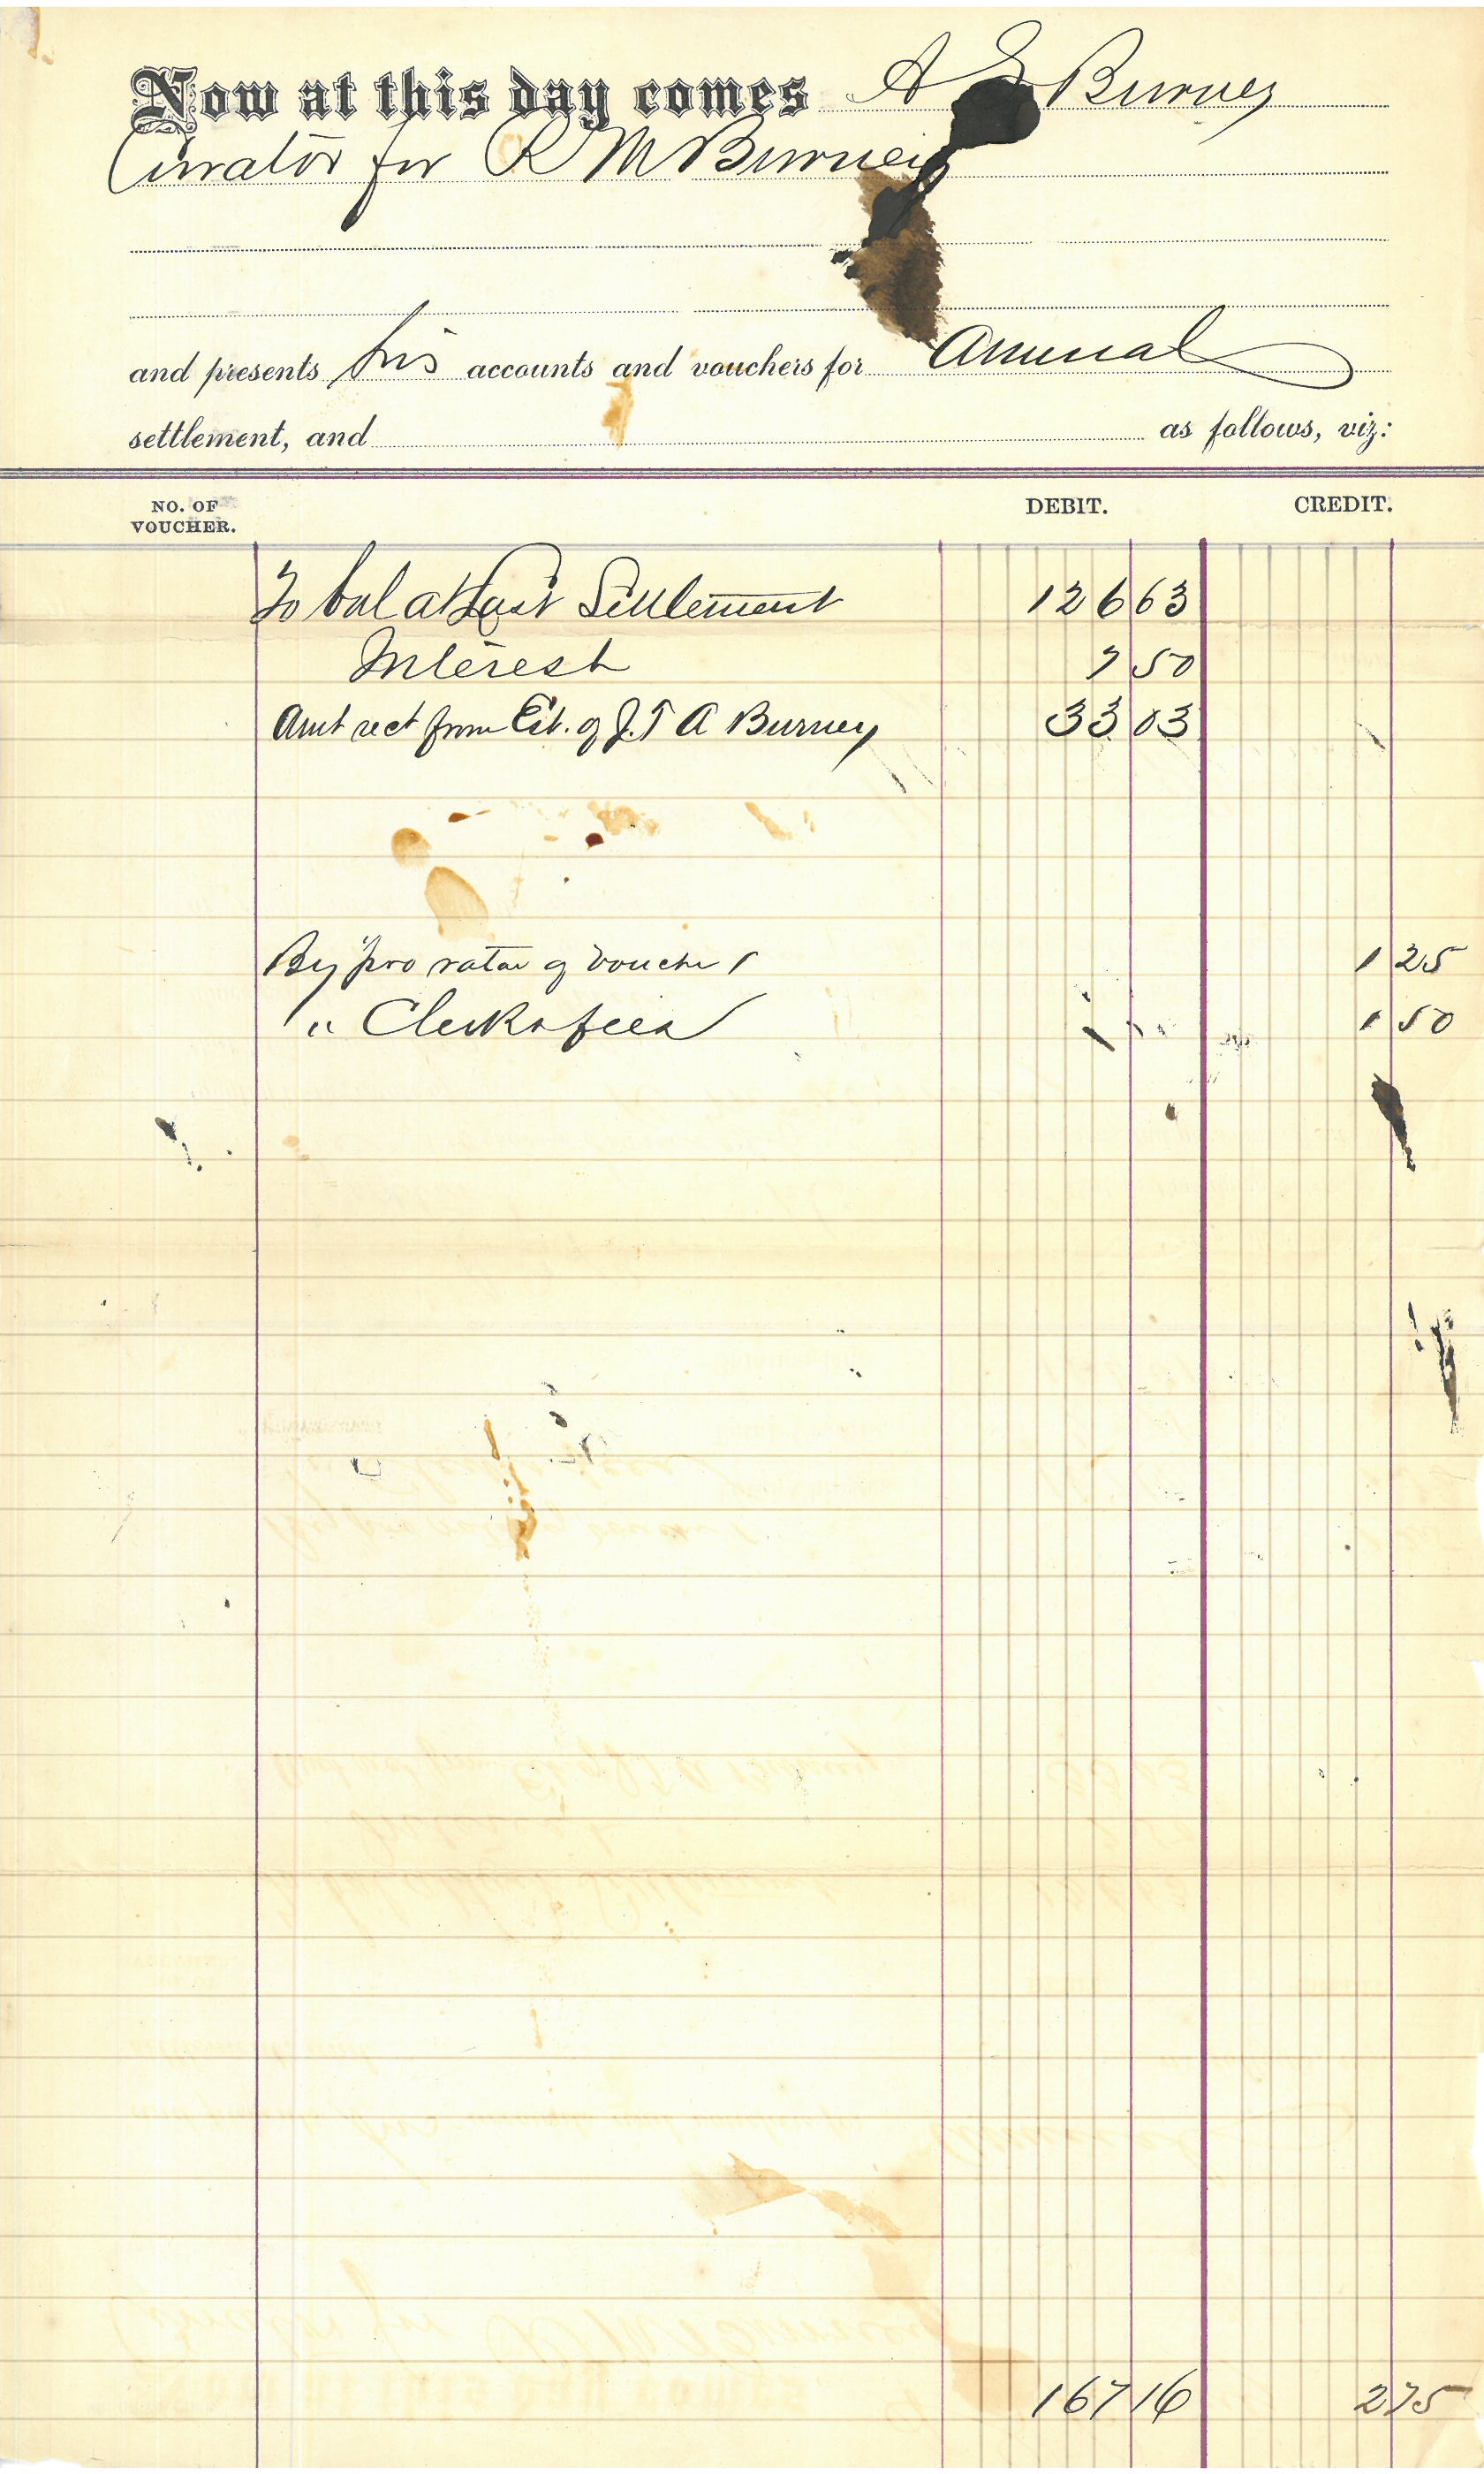 Now at this day comes A S Burney
Curator for R M Burney
and presents his accounts and vouchers for Annual
settlement, and as follows, viz:
NO. OF VOUCHER. DEBIT. CREDIT.
To bal at Last Settlement 126 63
Interest 7 50
Amt rect from Est. of J. T A Burney 33 03
By pro rata of voucher 1 1 25
" Clerks fees 1 50
167 16 2 75